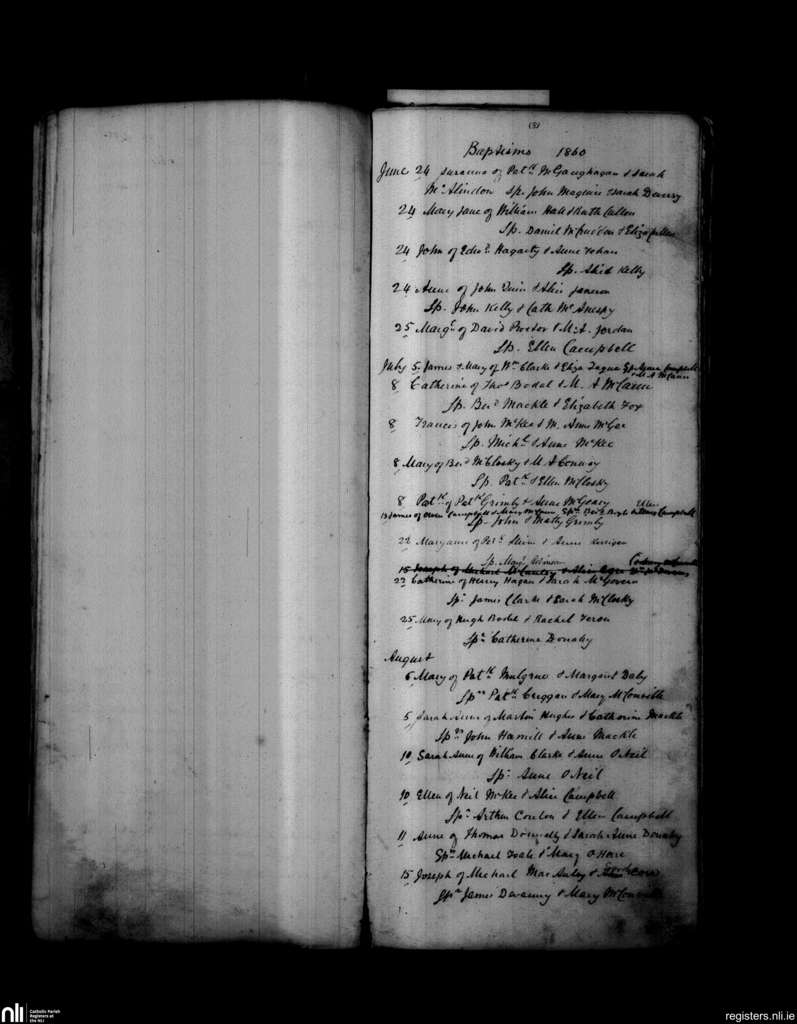 (3)
Baptisms 1860
June 24 Susanna of Patk McGaughagan & Sarah
McAlindon Sp. John Maguire & Sarah
24 Mary Jane of William Hall & Ruth Cullen
Sp. Daniel & Eliza Cullen
24 John of Edwd Hagarty & Anne
Sp. Kelly
24 Anne of John Quin & Alice
Sp. John Kelly & Cath McAnespy
25 Margt of David Proctor & M. A. Jordan
Sp. Ellen Campbell
July 5 James & Mary of Wm Clarke & Eliza Campbell
8 Catherine of Thos Bodel & M. A
Sp. Bernd Mackle & Elizabeth Fox
8 Francis of John McKee & M. Anne McGee
Sp. Michl & Anne McKee
8 Mary of Bernd McClosky & M. A Conway
Sp. Patk & Ellen McClosky
8 Patk of Patk Grimly & Anne McGeary
Ellen
13 James of Owen Campbell & Mary Campbell
Sp. John & Matty Grimly
22 Maryanne of & Anne
Sp. Mary
15 Joseph of Michael
23 Catherine of Henry Hagan & Sarah McGovern
Spr James Clarke & Sarah McClosky
25 Mary of Hugh Bodel & Rachel
Spr Catherine Donaly
August
6 Mary of Patk Mulgrue & Margaret Daly
Sprs Patk Creggan & Mary McConville
5 Sarah Anne of Martin Hughes & Catherine Mackle
Sprs John Hamill & Anne Mackle
10 Sarah Anne of William Clarke & Anne O Neil
Spr Anne O Neil
10 Ellen of Neil McKee & Alice Campbell
Spr Arthur Conlon & Ellen Campbell
11 Anne of Thomas Donnelly & Sarah Anne Donaly
Spr Michael Toale & Mary O Hare
15 Joseph of Michael Mac Auley &
Spr James Devanny & Mary McConville
nli
Catholic Parish
Registers at
the NLI
registers.nli.ie